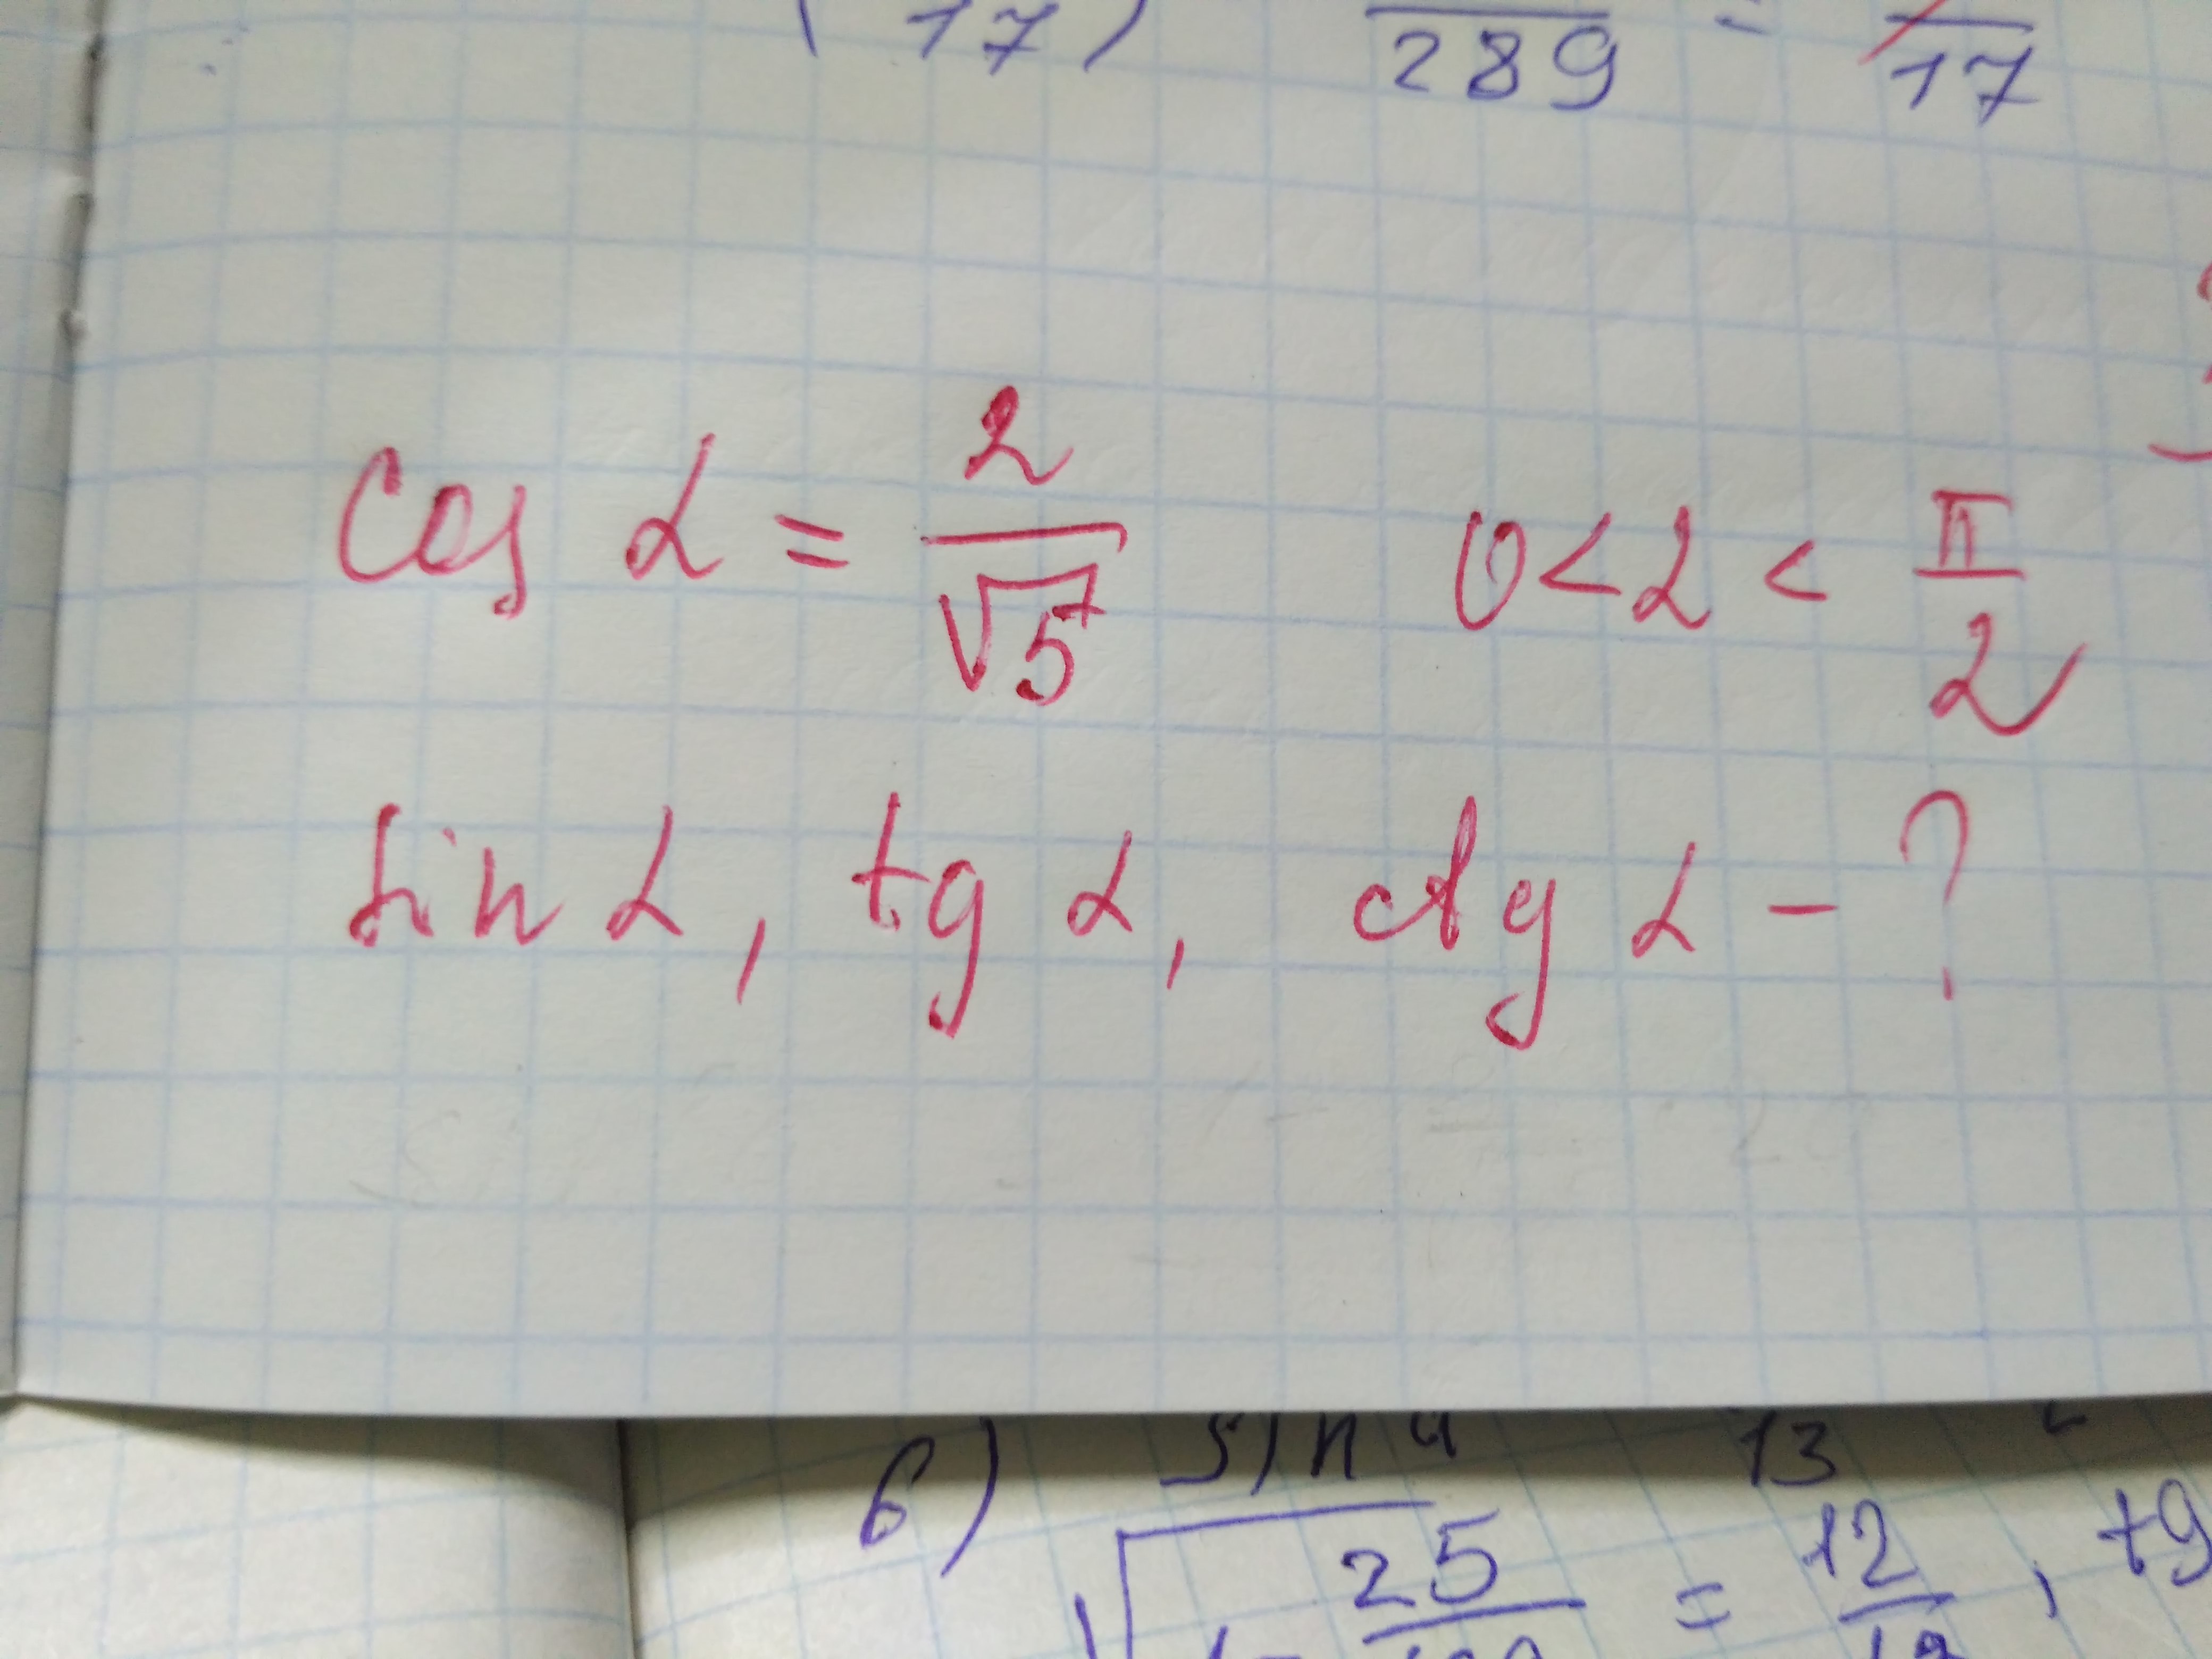 (17) 289 = 17
cos α = 2/√5   0 < α < π/2
sin α, tg α, ctg α - ?
б) sin α 13
√ 1 - 25 = 12 , tg